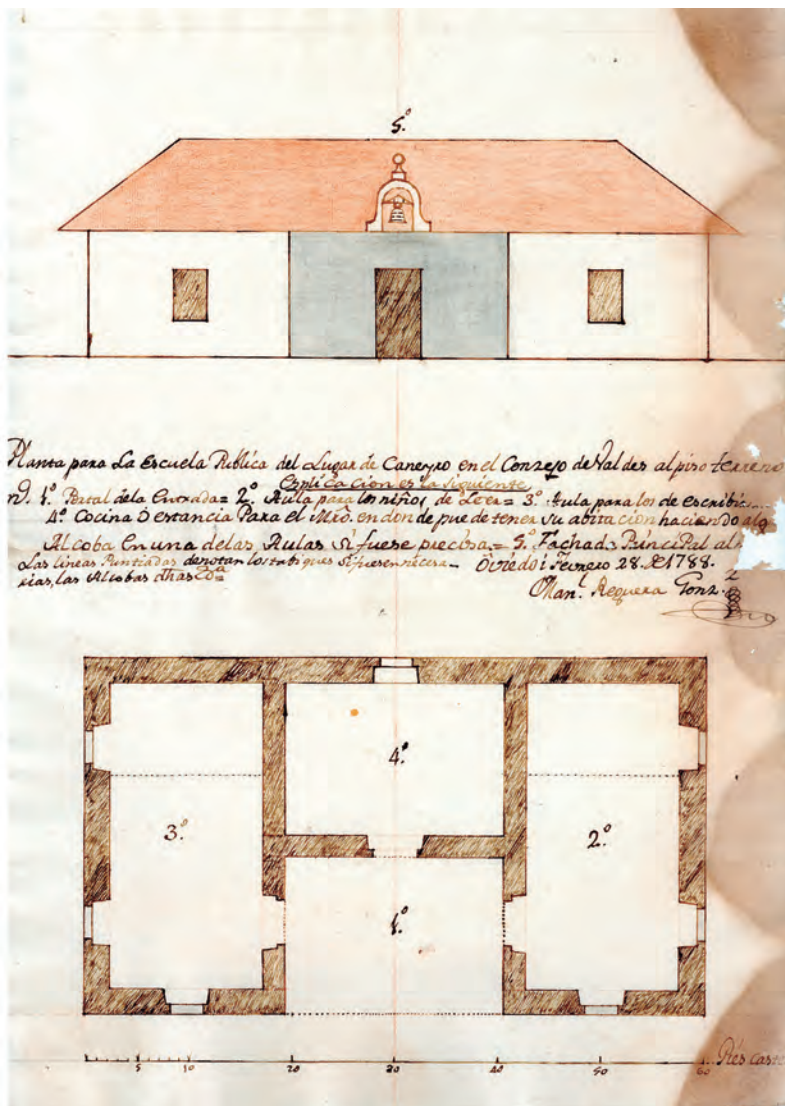 5.º
Planta para La Escuela Publica del Lugar de Caneyro en el Conzejo de Valdes al piso terreno
Esplicacion es la siguiente
N. 1.º Portal dela Entrada= 2.º Aula para los niños de Leer= 3.º Aula para los de escribir
4.º Cocina ô estancia Para el Mrô. en don de pue de tener su abitacion haciendo alg
Alcoba En una delas Aulas si fuese precisa.= 5.º Fachada Principal al
Las lineas Puntiadas denotan los tabiques si fuesen necesa-
rias, las Alcobas dhas
Oviedo i Febrero 28. de 1788.
Man.l Reguera Gonz.z
4.º
3.º
2.º
1.º
5 10 20 30 40 50 60 Piés caste